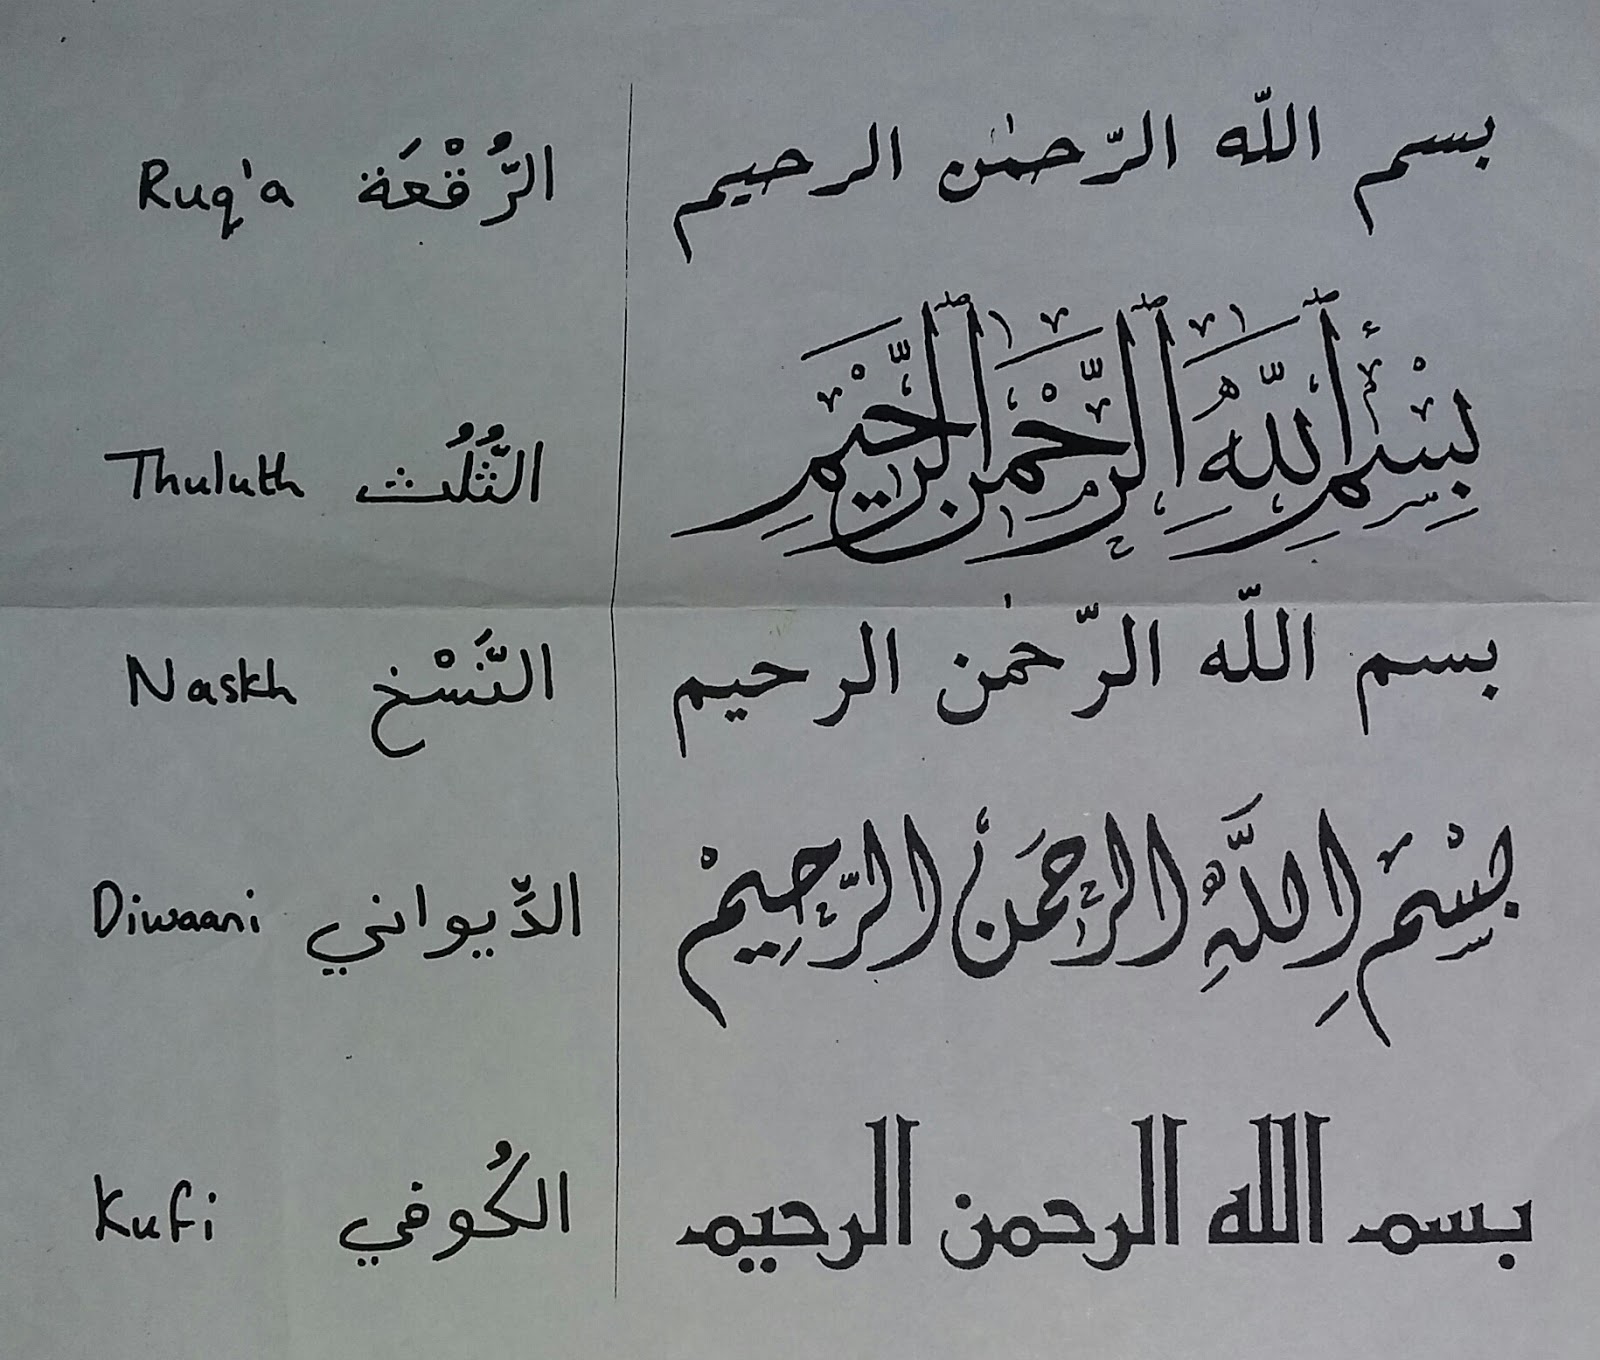 Ruq'a الرُّقْعَة بسم اللّه الرّحمٰن الرحيم
Thuluth الثُّلُث بِسْمِ ٱللَّهِ ٱلرَّحْمٰنِ ٱلرَّحِيْمِ
Naskh النَّسْخ بسم اللّه الرّحمٰن الرحيم
Diwaani الدِّيواني بِسْمِ اللَّهِ الرحمن الرَّحِيمْ
Kufi الكُوفي بسم الله الرحمن الرحيم